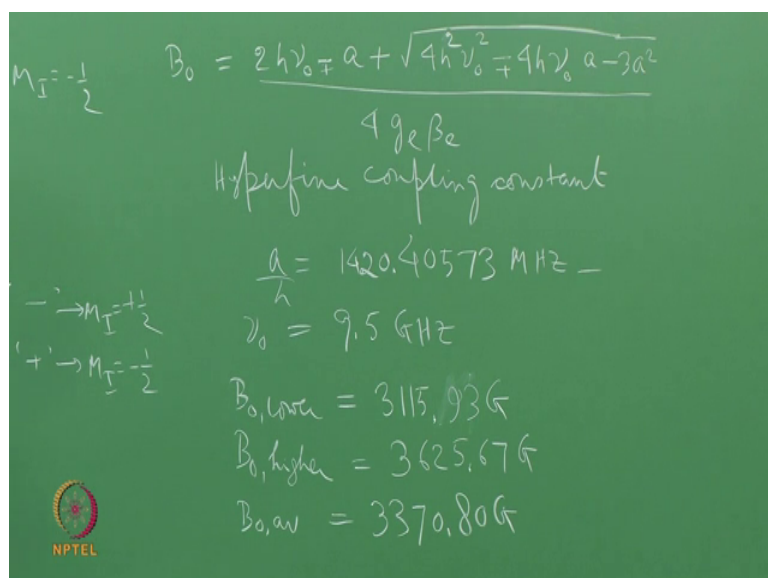 M_I = -1/2
B₀ = (2hν₀ ∓ a + √(4h²ν₀² ∓ 4hν₀ a - 3a²)) / (4 gₑ βₑ)
Hyperfine coupling constant
a/h = 1420.40573 MHZ –
'-' → M_I = +1/2
'+' → M_I = -1/2
ν₀ = 9.5 GHZ
B₀,lower = 3115.93G
B₀,higher = 3625.67G
B₀,av = 3370.80G
NPTEL